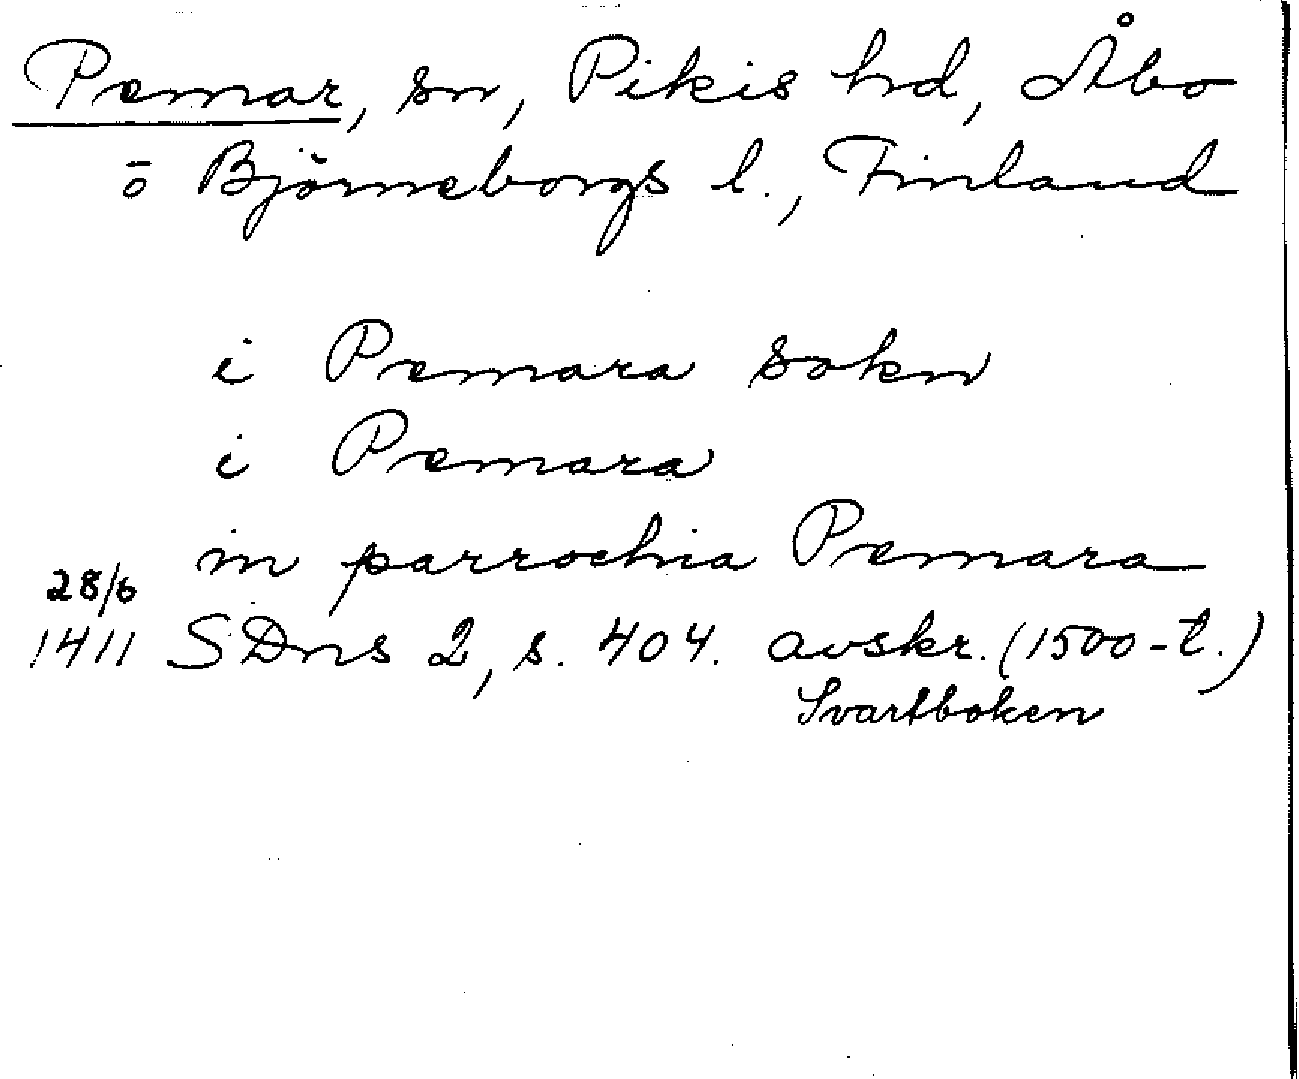 Pemar, sn, Pikis hd, Åbo
o Björneborgs l., Finland
i Pemara sokn
i Pemara
in parrochia Pemara
28/6
1411 SDns 2, s. 404. avskr. (1500-t.)
Svartboken